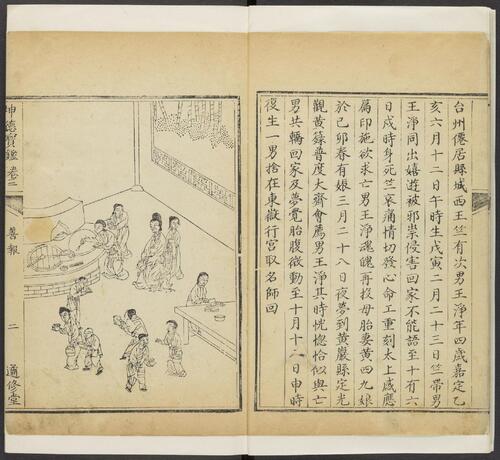 台州僊居縣城西王竺有次男王淨年四歲嘉定乙
亥六月十二日午時生戊寅二月二十三日竺帶男
王淨同出嬉遊被邪祟侵害回家不能語至十有六
日戌時身死竺哀痛情切發心命工重刻太上感應
篇印施欲求亡男王淨魂魄再投母胎妻黃四九娘
於己卯春有娠三月二十八日夜夢到黃巖縣定光
觀黃籙普度大齋會薦男王淨其時恍惚恰似與亡
男共轎回家及夢覺胎腹微動至十月十一日申時
復生一男捨在東嶽行宮取名師回
坤德寶鑑 卷二
善報
二
適修堂